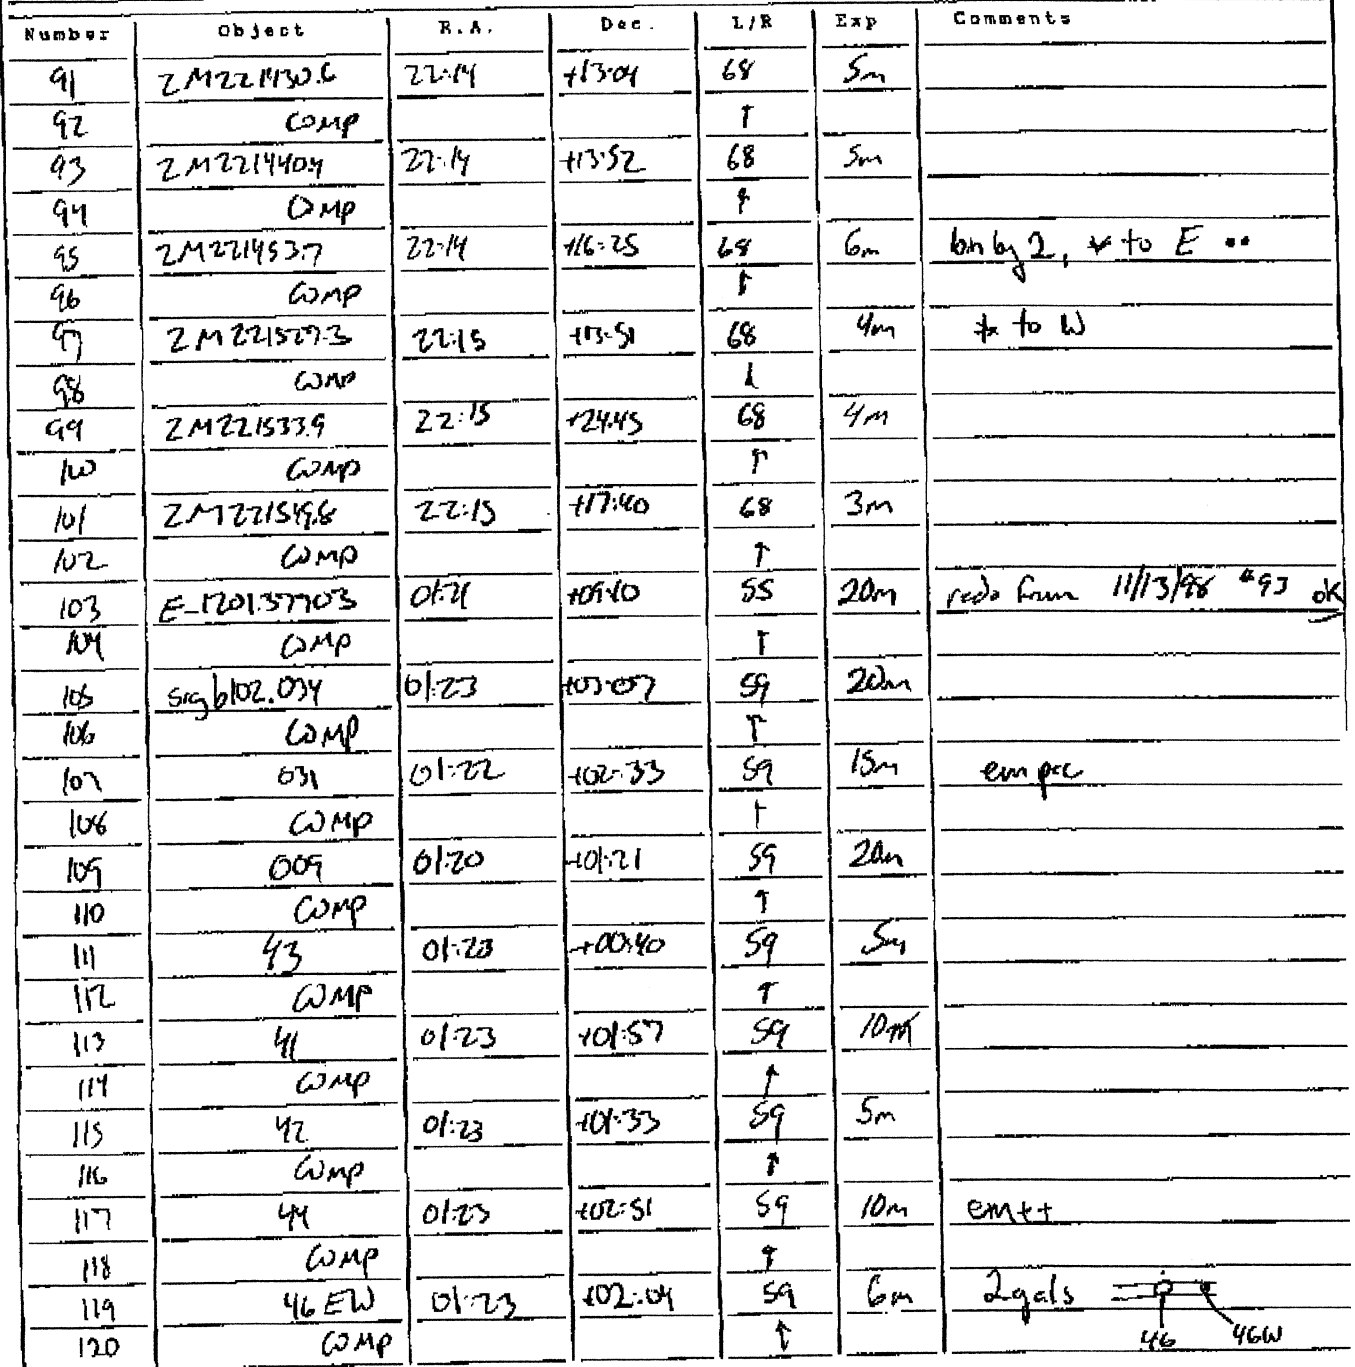 Number Object R.A. Dec. L/R Exp Comments
91 ZM221430.6 22:14 +13:04 68 5m
92 COMP ↑
93 ZM221440.4 22:14 +13:52 68 5m
94 COMP ↑
95 ZM221453.7 22:14 +16:25 68 6m bin by 2, * to E ••
96 COMP ↑
97 ZM221527.3 22:15 +13:51 68 4m * to W
98 COMP ↑
99 ZM221533.9 22:15 +24:45 68 4m
100 COMP ↑
101 ZM221549.8 22:15 +17:40 68 3m
102 COMP ↑
103 E_1201.37703 01:21 +09:10 55 20m redo from 11/13/98 #93 ok
104 COMP ↑
105 sigb102.034 01:23 +03:07 59 20m
106 COMP ↑
107 031 01:22 +02:33 59 15m em pec
108 COMP ↑
109 009 01:20 +01:21 59 20m
110 COMP ↑
111 43 01:23 +00:40 59 5m
112 COMP ↑
113 41 01:23 +01:57 59 10m
114 COMP ↑
115 42 01:23 +01:33 59 5m
116 COMP ↑
117 44 01:23 +02:51 59 10m em++
118 COMP ↑
119 46 EW 01:23 +02:04 59 6m 2 gals
120 COMP ↑ 46 46W